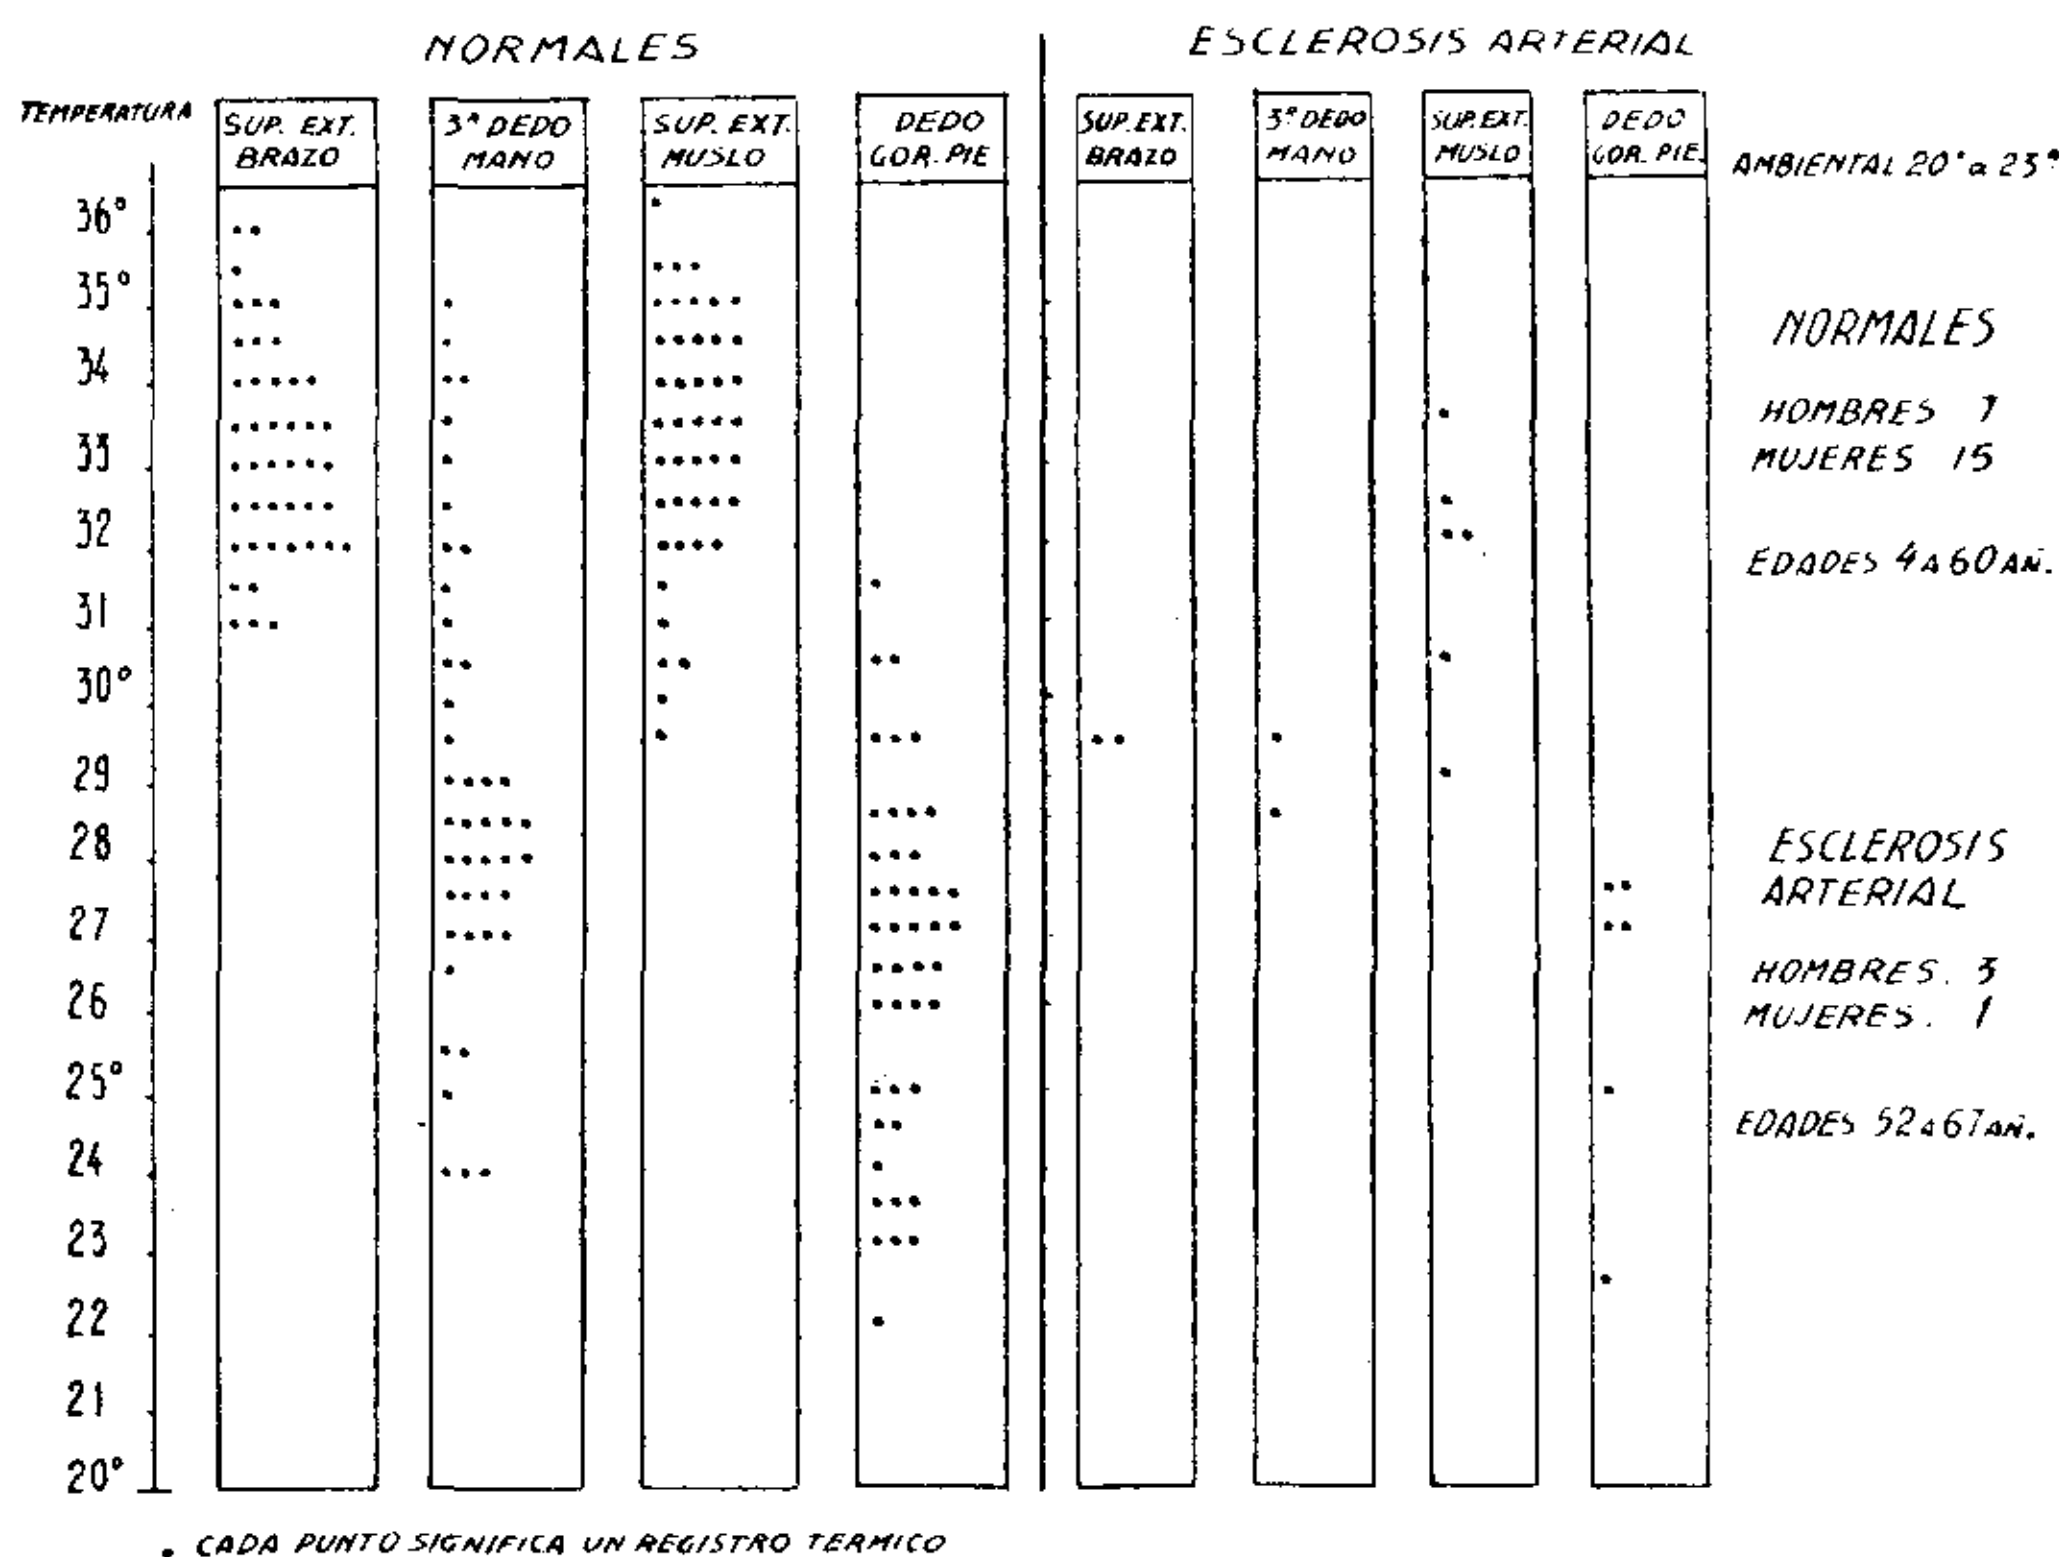 NORMALES
ESCLEROSIS ARTERIAL
TEMPERATURA
SUP. EXT.
BRAZO
3ª DEDO
MANO
SUP. EXT.
MUSLO
DEDO
GOR. PIE
SUP. EXT.
BRAZO
3º DEDO
MANO
SUP. EXT.
MUSLO
DEDO
GOR. PIE.
AMBIENTAL 20° a 23°
36°
35°
34
33
32
31
30°
29
28
27
26
25°
24
23
22
21
20°
NORMALES
HOMBRES 7
MUJERES 15
EDADES 4 A 60 AÑ.
ESCLEROSIS
ARTERIAL
HOMBRES. 3
MUJERES. 1
EDADES 52 a 67 AÑ.
• CADA PUNTO SIGNIFICA UN REGISTRO TERMICO